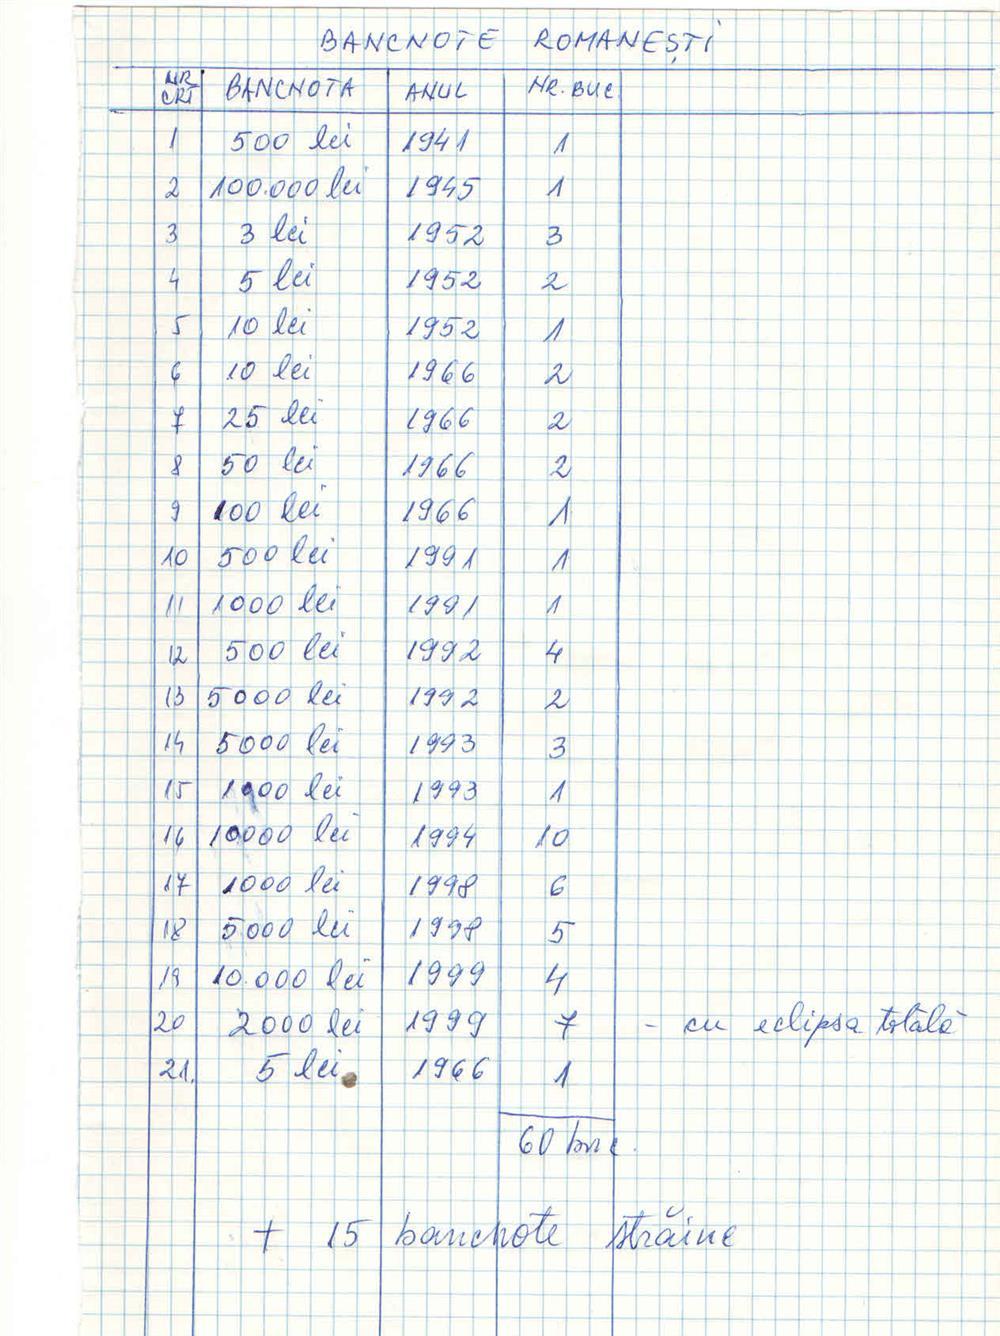 BANCNOTE ROMANEȘTI
NR. CRT BANCNOTA ANUL NR. BUC.
1 500 lei 1941 1
2 100.000 lei 1945 1
3 3 lei 1952 3
4 5 lei 1952 2
5 10 lei 1952 1
6 10 lei 1966 2
7 25 lei 1966 2
8 50 lei 1966 2
9 100 lei 1966 1
10 500 lei 1991 1
11 1000 lei 1991 1
12 500 lei 1992 4
13 5000 lei 1992 2
14 5000 lei 1993 3
15 1000 lei 1993 1
16 10000 lei 1994 10
17 1000 lei 1998 6
18 5000 lei 1998 5
19 10.000 lei 1999 4
20 2000 lei 1999 7 - cu eclipsa totală
21. 5 lei 1966 1
60 buc.
+ 15 bancnote străine